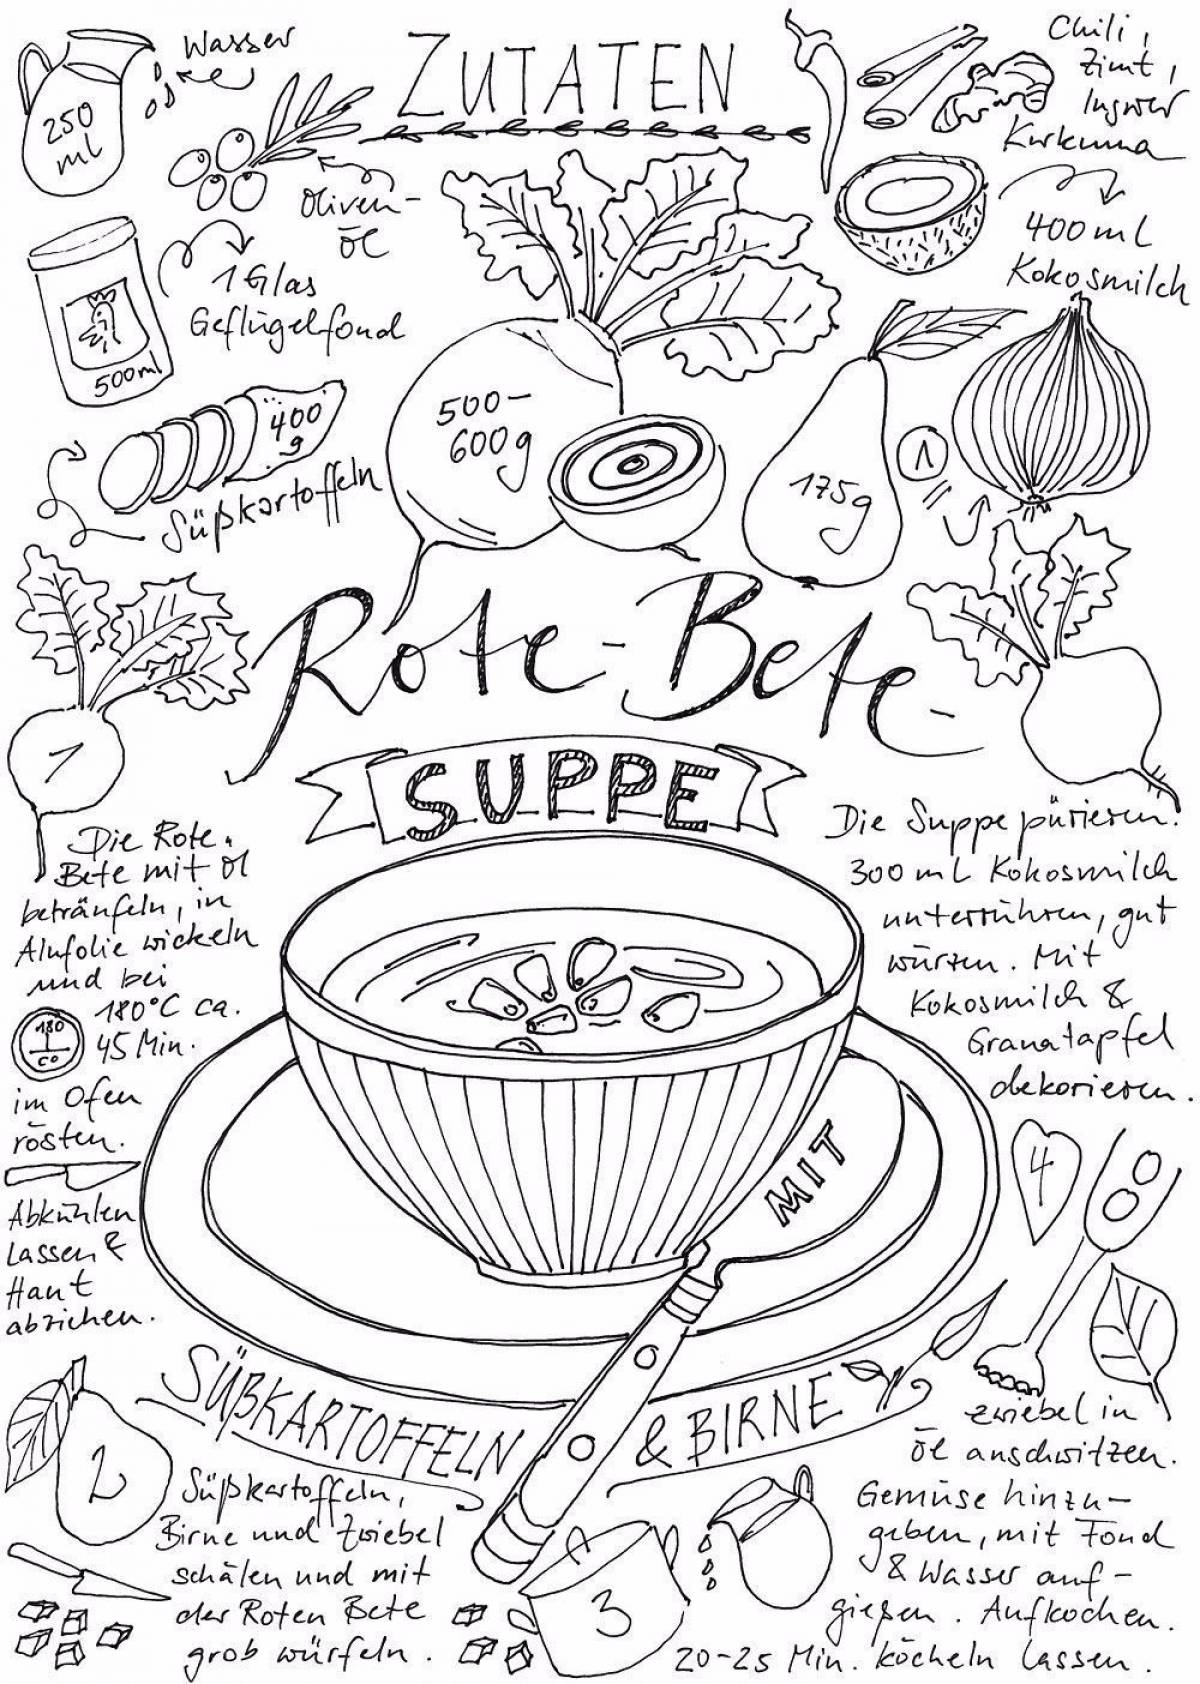 ZUTATEN
Wasser
250
ml
Oliven-
öl
Chili,
Zimt,
Ingwer
Kurkuma
400 ml
Kokosmilch
1 Glas
Geflügelfond
500ml
400
g
Süßkartoffeln
500-
600g
175g
1
Rote-Bete-
SUPPE
1
Die Rote-
Bete mit Öl
beträufeln, in
Alufolie wickeln
und bei
180°C ca.
45 Min.
180
C°
im Ofen
rösten.
Abkühlen
lassen &
Haut
abziehen.
MIT
SÜßKARTOFFELN & BIRNE
2
Süßkartoffeln,
Birne und Zwiebel
schälen und mit
der Roten Bete
grob würfeln.
3
Zwiebel in
Öl anschwitzen.
Gemüse hinzu-
geben, mit Fond
& Wasser auf-
gießen. Aufkochen.
20-25 Min. köcheln lassen.
4
Die Suppe pürieren.
300 ml Kokosmilch
unterrühren, gut
würzen. Mit
Kokosmilch &
Granatapfel
dekorieren.